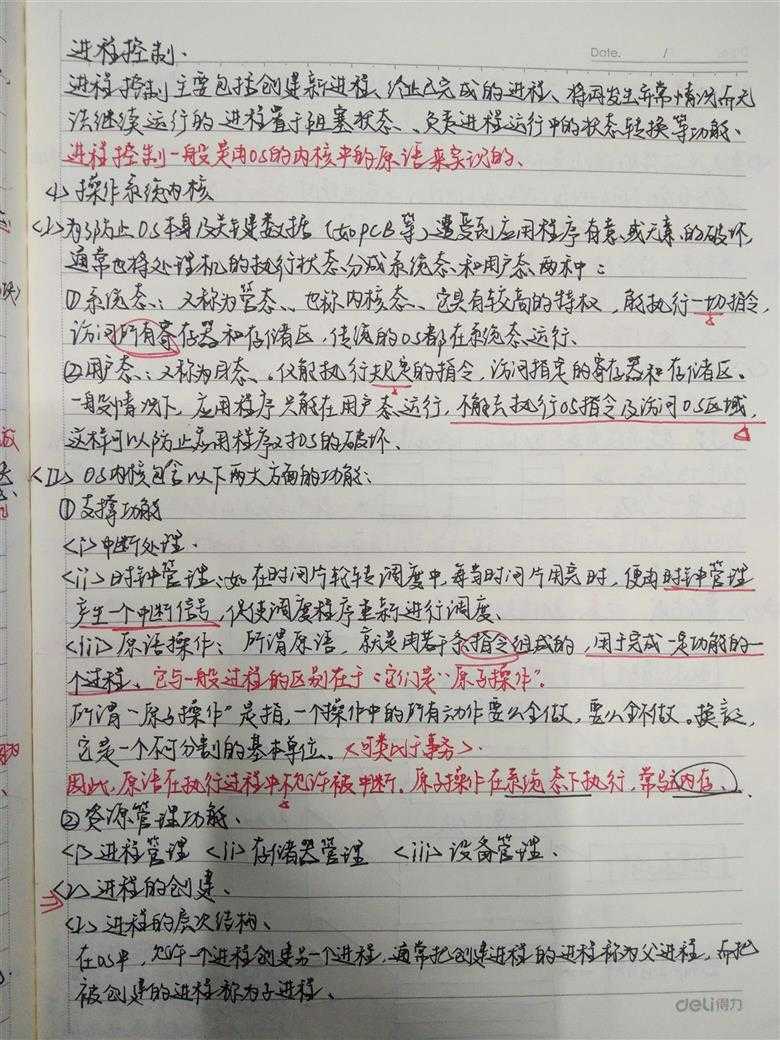 Date. /
进程控制.
进程控制主要包括创建新进程、终止已完成的进程、将因发生异常情况而无
法继续运行的进程置于阻塞状态、负责进程运行中的状态转换等功能、
进程控制一般是由OS的内核中的原语来实现的、
<1> 操作系统内核
<I> 为了防止OS本身及关键数据（如PCB等）遭受到应用程序有意或无意的破坏,
通常也将处理机的执行状态分成系统态和用户态两种：
①系统态：又称为管态、也称内核态、它具有较高的特权，能执行一切指令,
访问所有寄存器和存储区，传统的OS都在系统态运行、
②用户态：又称为目态。仅能执行规定的指令，访问指定的寄存器和存储区。
一般情况下，应用程序只能在用户态运行，不能去执行OS指令及访问OS区域,
这样可以防止应用程序对OS的破坏、
<II> OS内核包含以下两大方面的功能：
①支撑功能
<i>中断处理.
<ii>时钟管理：如在时间片轮转调度中，每当时间片用完时，便由时钟管理
产生一个中断信号，促使调度程序重新进行调度、
<iii>原语操作：所谓原语，就是由若干条指令组成的，用于完成一定功能的一
个过程、它与一般过程的区别在于：它们是“原子操作”.
所谓“原子操作”是指，一个操作中的所有动作要么全做，要么全不做。换言之,
它是一个不可分割的基本单位。<可类比于事务>.
因此，原语在执行过程中不允许被中断. 原子操作在系统态下执行，常驻内存、
②资源管理功能、
<i>进程管理 <ii>存储器管理 <iii>设备管理.
<2>进程的创建、
<I>进程的层次结构、
在OS中，允许一个进程创建另一个进程，通常把创建进程的进程称为父进程，而把
被创建的进程称为子进程、
deli得力